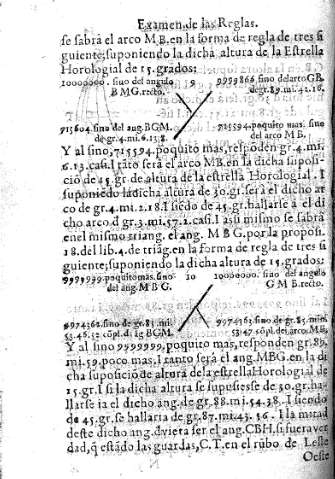 Examen de las Reglas.
se sabrá el arco M B. en la forma de regla de tres si
guiente; suponiendo la dicha altura de la Estrella
Horologial de 15. grados:
10000000. sino del angulo 9 9999866. sino del arco G B.
B M G. recto. de gr. 89. mi. 42. 16.
715604. sino del ang. BGM. 715594. poquito mas. sino
de gr. 4. mi. 6. 13. 8. del arco M B.
Y al sino, 715594. poquito mas, responden gr. 4. mi.
6. 13. casi. I tãto será el arco M B. en la dicha suposi
ciõ de 15. gr. de altura de la estrella Horologial. I
suponiẽdo la dicha altura de 30. gr. será el dicho ar
co de gr. 4. mi. 2. 18. I siẽdo de 45. gr. hallarse à el di
cho arco d gr. 3. mi. 57. 2. casi. I asi mismo se sabrá
en el mismo triang. el ang. M B G. por la proposi.
18. del lib. 4. de triãg. en la forma de regla de tres si
guiente; suponiendo la dicha altura de 15. grados:
9999999. poquito mas. sino 10 10000000. sino del angulo
del ang. M B G. G M B. recto.
9974362. sino de gr. 85. mi. 9974362. sino de gr. 85. min.
53. 46. 52. cõpl. d. ãg. BGM. 53. 47. cõpl. del arco M B.
Y al sino 9999999, poquito mas, responden gr. 89.
mi. 59. poco mas. I tanto será el ang. MBG. en la di
cha suposiciõ de altura de la estrella Horologial de
15. gr. I si la dicha altura se supusiesse de 30. gr. ha
llarse ia el dicho ang. de gr. 88. mi. 54. 38. I siendo
de 45. gr. se hallaria de gr. 87. mi. 43. 56. I la mitad
deste dicho ang. deviera ser el ang. CBH. si fuera ver
dad, q̃ estãdo las guardas, C. T. en el rũbo de Lesle
Oeste